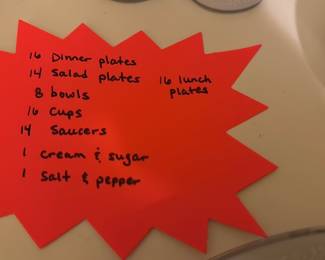 16 Dinner plates
14 Salad plates
16 lunch
plates
8 bowls
16 Cups
14 Saucers
1 cream & sugar
1 Salt & pepper